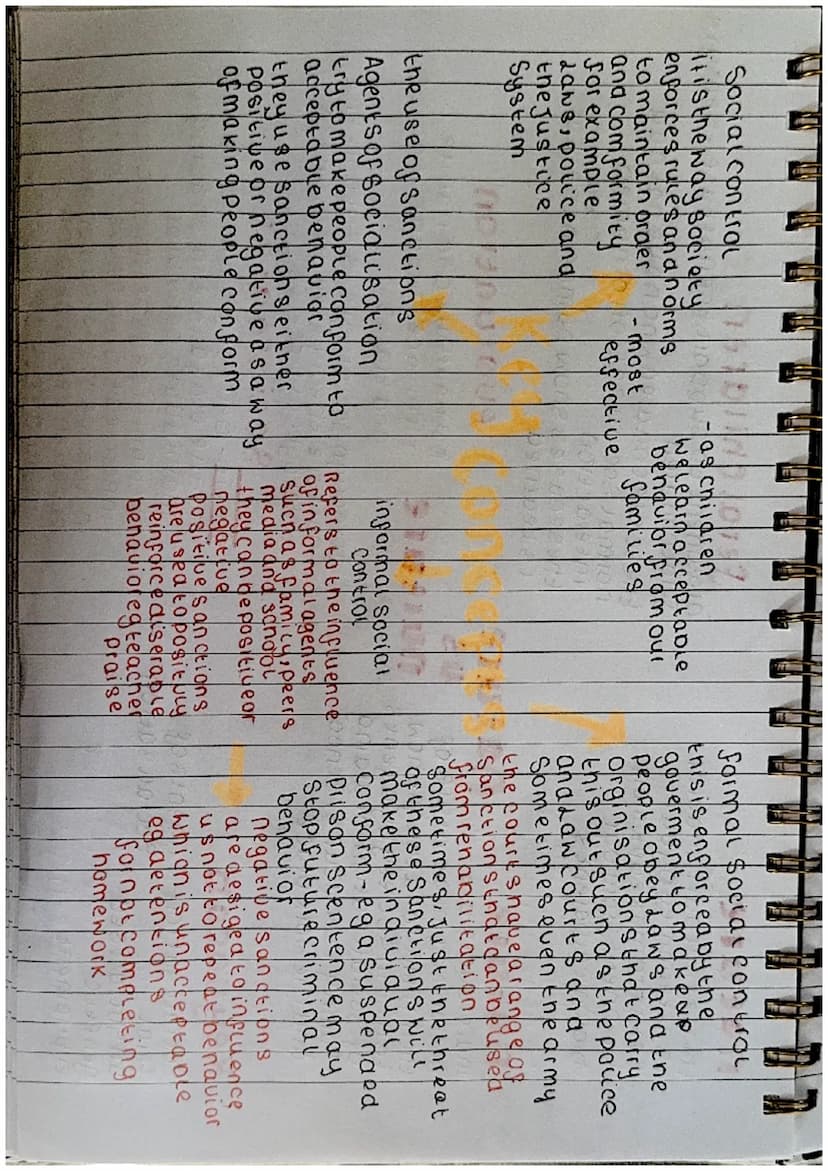 Key Concepts
Social control
it is the way society
enforces rules and norms
to maintain order
and comformity
for example
Laws, police and
the justice
System
- most
effective
- as children
we learn acceptable
behavior from our
families
formal social control
this is enforced by the
goverment to make
people obey laws and the
orginisations that carry
this out such as the police
and Law courts and
sometimes even the army
the courts have a range of
sanctions that can be used
from rehabilitation
Sometimes, Just the threat
of these sanctions will
make the individual
conform - eg a suspended
prison scentence may
Stop future criminal
behavior
the use of sanctions
Agents of socialisation
try to make people conform to
acceptable behavior
they use sanctions either
positive or negative as a way
of making people conform
informal social
control
Refers to the influence
of informal agents
such as family, peers
media and school
they can be positive or
negative
positive sanctions
are used to
reinforce
behavior eg teacher
praise
negative sanctions
are desiged to influence
us not to repeat behavior
which is unacceptable
eg detentions
for not completing
homework